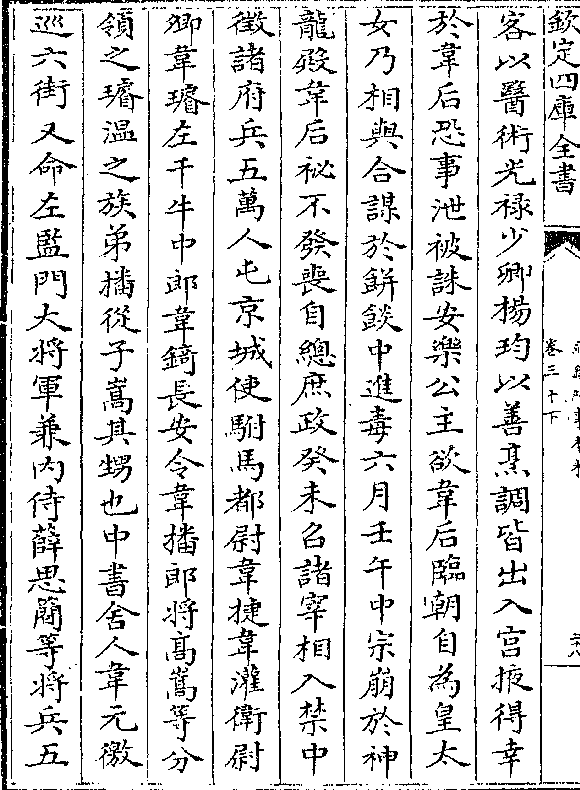 欽定四庫全書
卷三十下
客以醫術光禄少卿楊均以善烹調皆出入宫掖得幸
於韋后恐事泄被誅安樂公主欲韋后臨朝自為皇太
女乃相與合謀於餅餤中進毒六月壬午中宗崩於神
龍殿韋后祕不發喪自總庶政癸未召諸宰相入禁中
徵諸府兵五萬人屯京城使駙馬都尉韋捷韋灌衛尉
卿韋璿左千牛中郎韋錡長安令韋播郎將髙嵩等分
領之璿温之族弟播從子嵩其甥也中書舍人韋元徼
巡六街又命左監門大將軍兼内侍薛思簡等将兵五